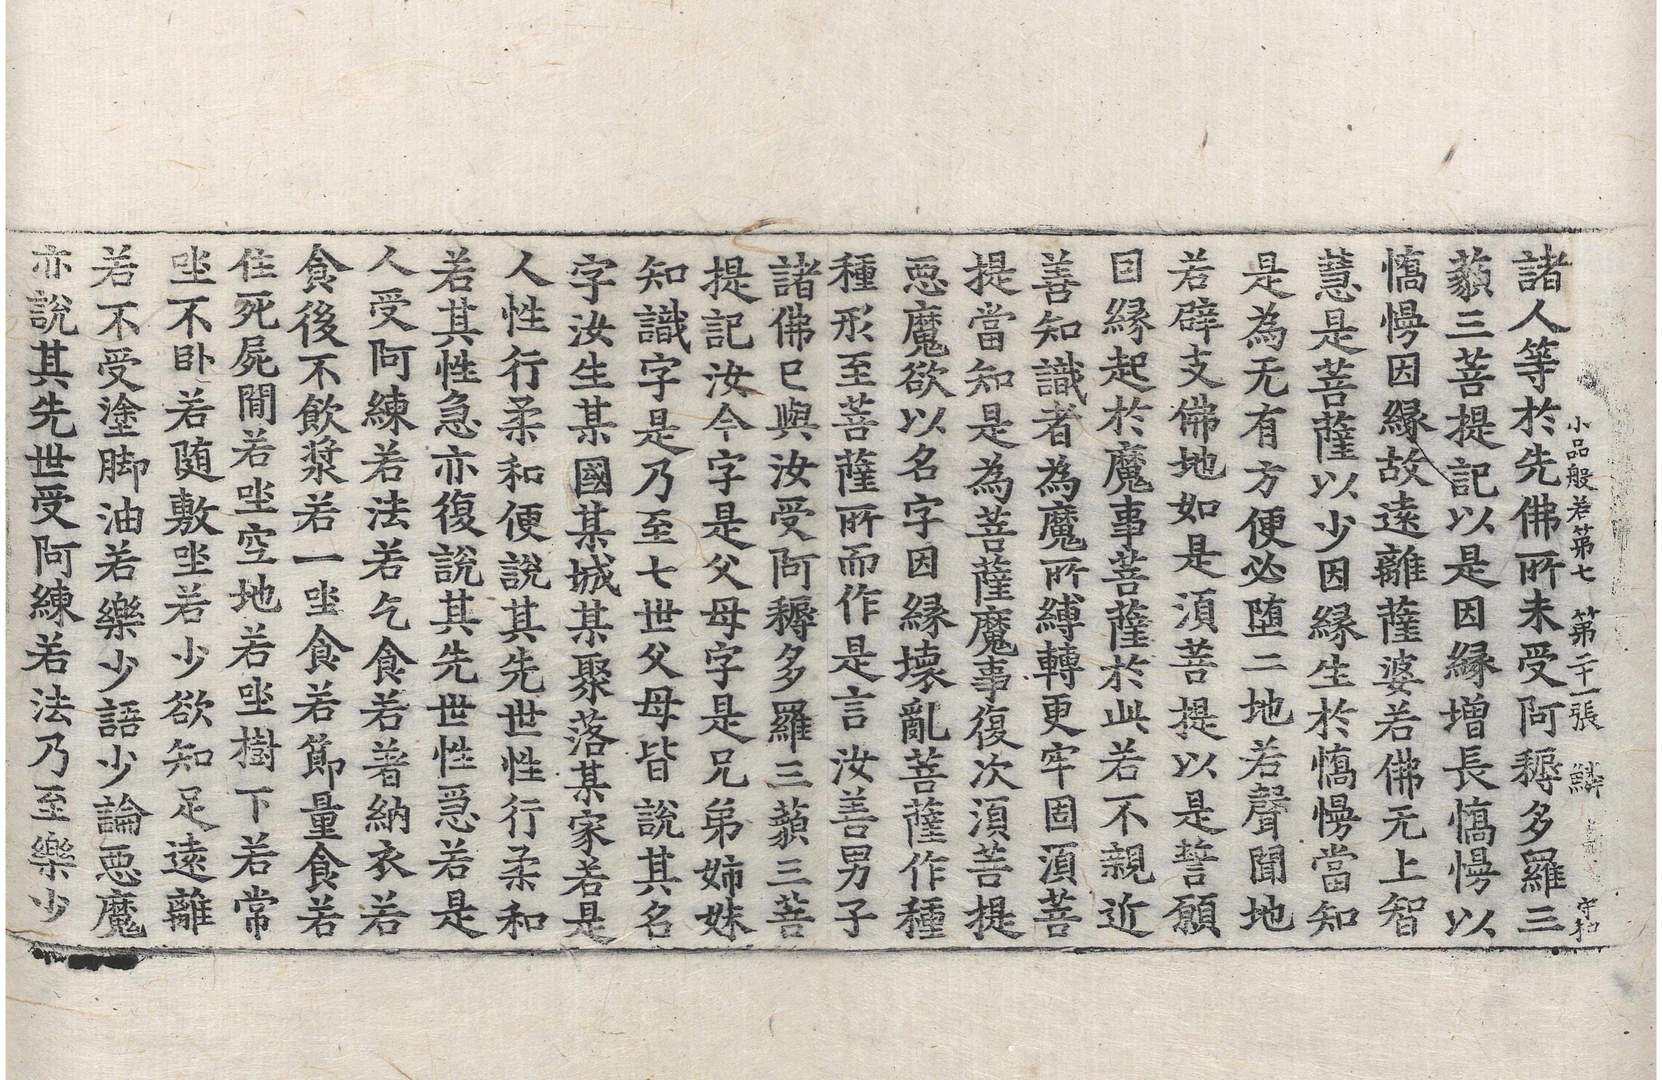 小品般若第七　第二十一張　鱗　守和
諸人等於先佛所未受阿耨多羅三
藐三菩提記以是因縁增長憍慢以
憍慢因縁故遠離薩婆若佛无上智
慧是菩薩以少因縁生於憍慢當知
是為无有方便必墮二地若聲聞地
若辟支佛地如是須菩提以是誓願
因縁起於魔事菩薩於此若不親近
善知識者為魔所縛轉更牢固須菩
提當知是為菩薩魔事復次須菩提
惡魔欲以名字因縁壞亂菩薩作種
種形至菩薩所而作是言汝善男子
諸佛已與汝受阿耨多羅三藐三菩
提記汝今字是父母字是兄弟姉妹
知識字是乃至七世父母皆說其名
字汝生某國某城某聚落某家若是
人性行柔和便說其先世性行柔和
若其性急亦復說其先世性急若是
人受阿練若法若乞食若著納衣若
食後不飲漿若一坐食若節量食若
住死屍間若坐空地若坐樹下若常
坐不卧若随敷坐若少欲知足遠離
若不受塗脚油若樂少語少論惡魔
亦說其先世受阿練若法乃至樂少